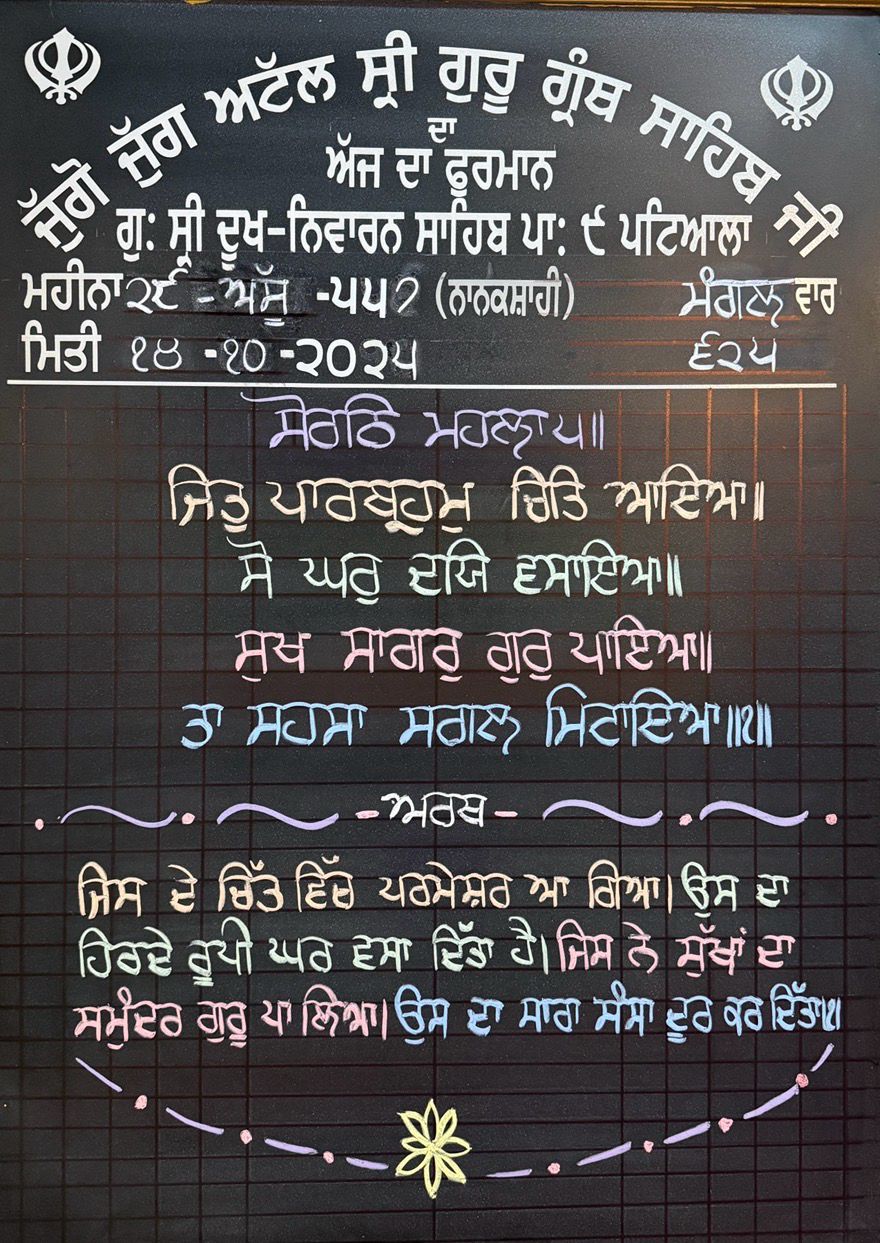 ਜੁੱਗੋ ਜੁੱਗ ਅਟੱਲ ਸ੍ਰੀ ਗੁਰੂ ਗ੍ਰੰਥ ਸਾਹਿਬ ਜੀ
ਦਾ
ਅੱਜ ਦਾ ਫੁਰਮਾਨ
ਗੁ: ਸ੍ਰੀ ਦੂਖ-ਨਿਵਾਰਨ ਸਾਹਿਬ ਪਾ: ੯ ਪਟਿਆਲਾ
ਮਹੀਨਾ ੨੯ -ਅੱਸੂ -੫੫੭ (ਨਾਨਕਸ਼ਾਹੀ) ਮੰਗਲ ਵਾਰ
ਮਿਤੀ ੧੪ -੧੦ -੨੦੨੫ ੬੨੫
ਸੋਰਠਿ ਮਹਲਾ ੫॥
ਜਿਤੁ ਪਾਰਬ੍ਰਹਮੁ ਚਿਤਿ ਆਇਆ॥
ਸੋ ਘਰੁ ਦਯਿ ਵਸਾਇਆ॥
ਸੁਖ ਸਾਗਰੁ ਗੁਰੁ ਪਾਇਆ॥
ਤਾ ਸਹਸਾ ਸਗਲ ਮਿਟਾਇਆ॥੧॥
-ਅਰਥ-
ਜਿਸ ਦੇ ਚਿੱਤ ਵਿੱਚ ਪਰਮੇਸ਼ਰ ਆ ਗਿਆ। ਉਸ ਦਾ
ਹਿਰਦੇ ਰੂਪੀ ਘਰ ਵਸਾ ਦਿੱਤਾ ਹੈ। ਜਿਸ ਨੇ ਸੁੱਖਾਂ ਦਾ
ਸਮੁੰਦਰ ਗੁਰੂ ਪਾ ਲਿਆ। ਉਸ ਦਾ ਸਾਰਾ ਸੰਸਾ ਦੂਰ ਕਰ ਦਿੱਤਾ।੧।